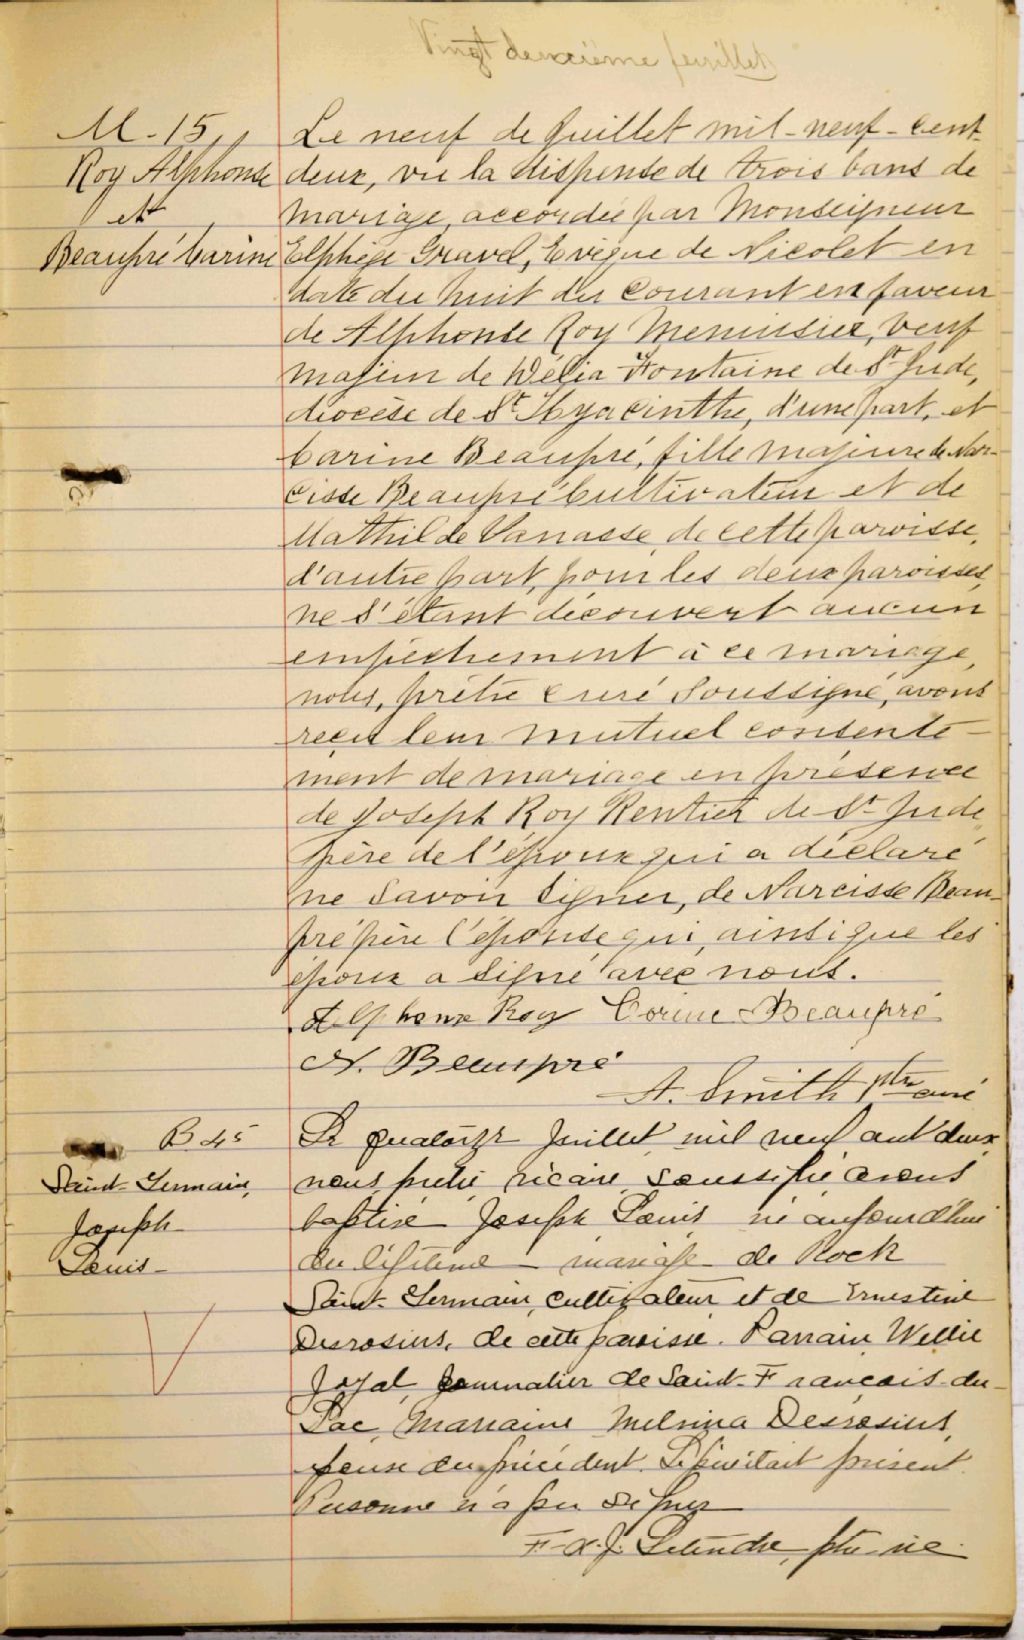 Vingt deuxième feuillet
M-15
Roy Alphonse
et
Beaupré Carine
Le neuf de Juillet mil-neuf-cent
deux, vu la dispense de trois bans de
mariage, accordée par Monseigneur
Elphège Gravel, Evêque de Nicolet en
date du huit du courant en faveur
de Alphonse Roy Menuisier, veuf
majeur de Délia Fontaine de St Jude,
diocèse de St Hyacinthe, d'une part, et
Carine Beaupré, fille majeure de Nar-
cisse Beaupré Cultivateur et de
Mathilde Vanasse, de cette paroisse,
d'autre part, pour les deux paroisses,
ne s'étant découvert aucun
empêchement à ce mariage,
nous, prêtre curé soussigné, avons
reçu leur mutuel consente-
ment de mariage en présence
de Joseph Roy Rentier de St Jude
père de l'époux qui a déclaré
ne savoir signer, de Narcisse Beau-
pré père l'épouse qui, ainsi que les
époux a signé avec nous.
Alphonse Roy Corine Beaupré
N. Beaupré
A. Smith ptre curé
B 45
Saint-Germain,
Joseph
Louis
Le quatorze Juillet mil neuf cent deux
nous prêtre vicaire soussigné avons
baptisé Joseph Louis né aujourd'hui
du légitime mariage de Rock
Saint-Germain, cultivateur et de Ernestine
Desrosiers, de cette paroisse. Parrain Wellie
Joyal, journalier de Saint-François-du-
Lac, Marraine Melvina Desrosiers,
épouse du précédent. Le père était présent.
Personne n'a pu signer
F-X.J. Letendre, ptre vic.